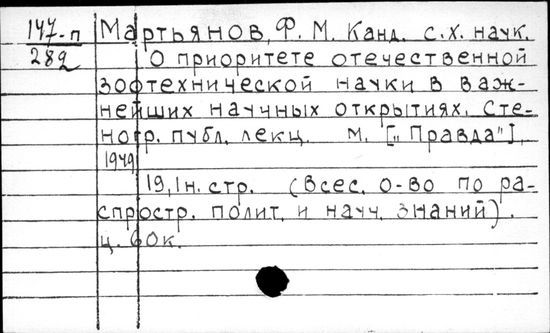 147-п
282
Мартьянов, Ф. М. Канд. с.х. наук.
О приоритете отечественной
зоотехнической науки в важ-
нейших научных открытиях. Сте-
ногр. публ. лекц. М. [„Правда"],
1949
19, 1н. стр. (Всес. о-во по ра-
спростр. полит. и науч. знаний).
ц. 60к.